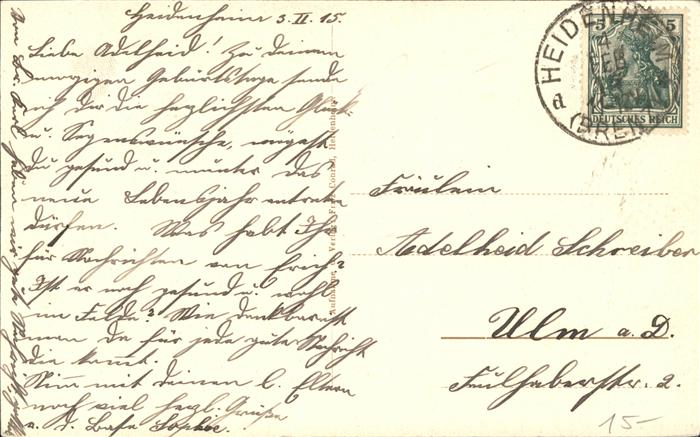 Heidenheim 3. II. 15.
Liebe Adelheid! Zu deinem
morgigen Geburtstage sende
ich dir die herzlichsten Glück
u. Segenswünsche, mögest
du gesund u. munter das
neue Lebensjahr antreten
dürfen. Was habt Ihr
für Nachrichten von Erich?
Ist er noch gesund u. wohl
im Felde? Wie dankbar ist
man da für jede gute Nachricht
die kommt.
Nimm mit deinen l. Eltern
noch viel herzl. Grüße
v. d. Base Sophie.
Von
Karl haben wir gute
Aufnahme u. Verlag Franz Conrad, Heidenheim
HEIDENHEIM
4 FEB
(BRENZ)
5 5
DEUTSCHES REICH
Fräulein
Adelheid Schreiber
Ulm a. D.
Faulhaberstr. 2.
15-